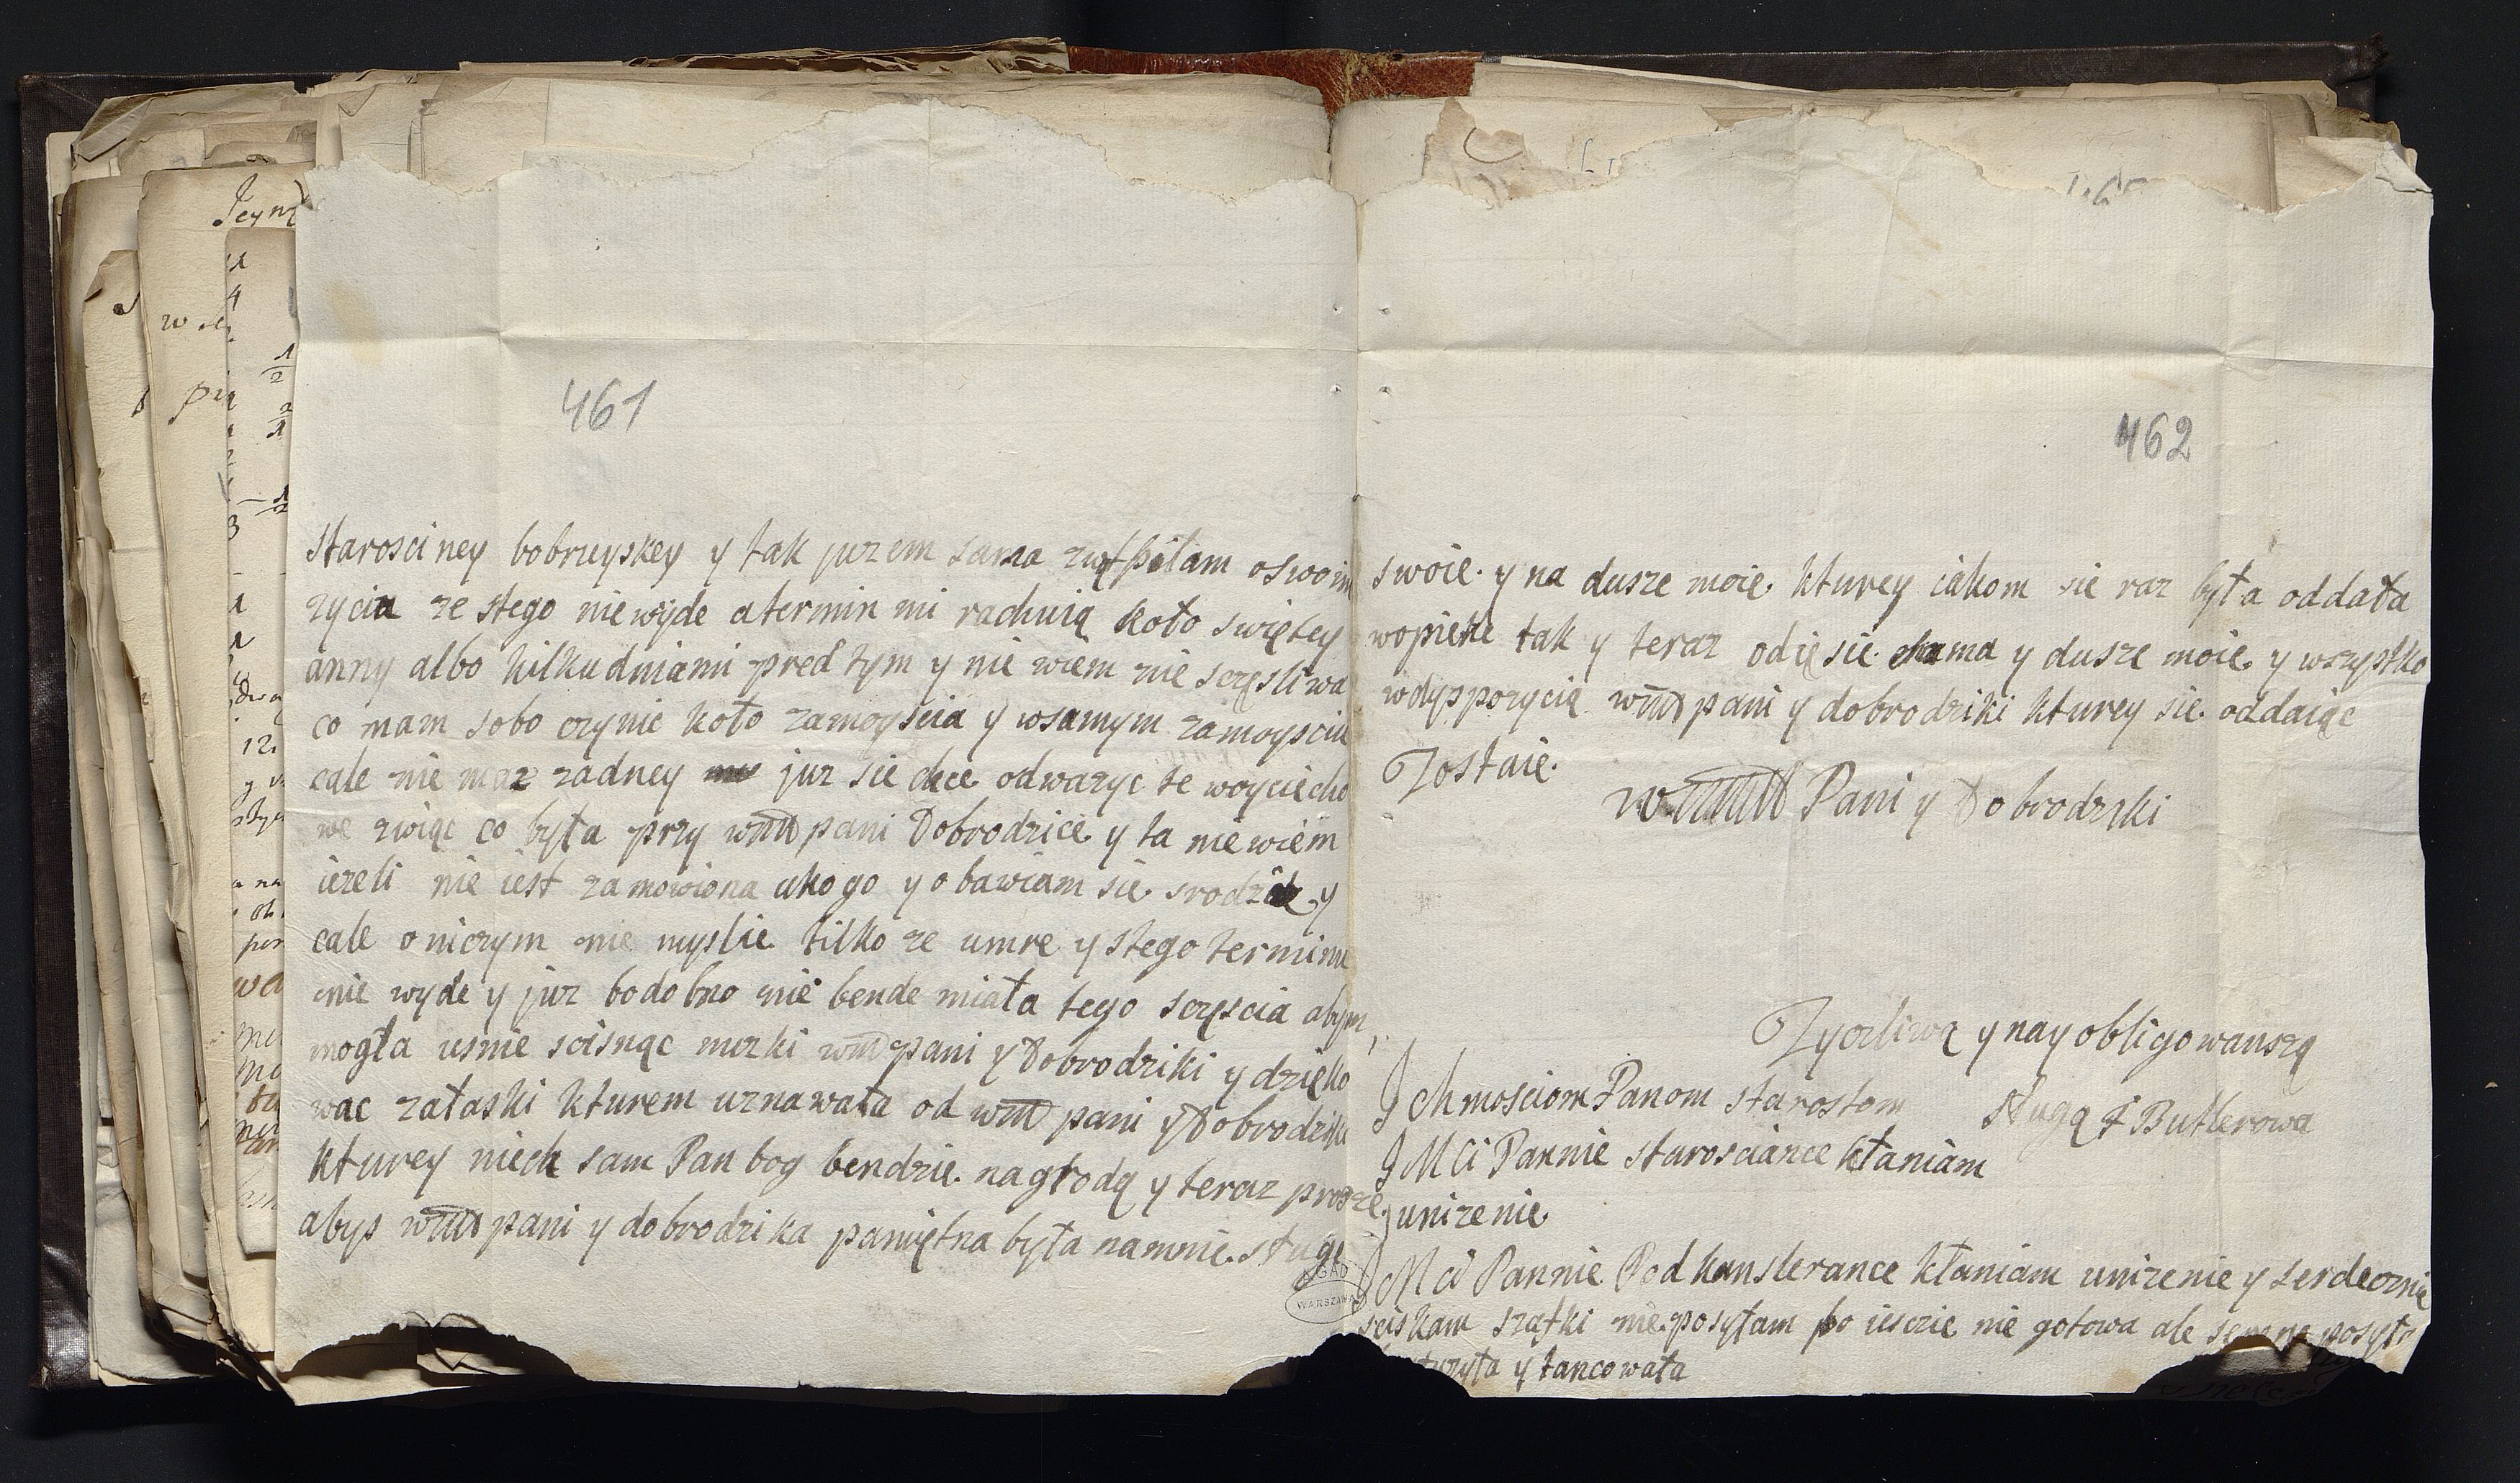 461
starosciney bobruyskey y tak jurem sama zwątpiłam oswoim
zyciu ze stego niewyde atermin mi rachuią koło swiętey
anny albo kilkudniami pred tym y nie wiem nie scęsliwa
co mam sobo czynic koło zamoyscia y wsamym zamoysciu
cale nie masz zadney juz sie chce odwazyc te woyciecho
we zwiąc co była przy wm pani Dobrodzice y ta niewiem
iezeli nie iest zamowiona ukogo y obawiam sie srodze y
cale oniczym nie myslie tilko ze umre y stego terminu
nie wyde y juz bodobno nie bende miała tego scęscia abym
mogła usnie scisnąc nuzki wm pani y Dobrodziki y dzięko
wac załaski kturem uznawała od wm pani y Dobrodziki
kturey niech sam Pan bog bendzie nagrodą y teraz prosze
abys wm pani y dobrodzika pamiętna była namnie sługe
462
swoie y na dusze moie kturey iakom sie raz była oddała
wopieke tak y teraz odię sie sama y dusze moie y wszystko
wdyspozycią wm pani y dobrodziki kturey sie oddaiąc
Zostaie
wm Pani y Dobrodziki
Zyczliwą y nayobligowanszą
sługą F Butlerowa
Ichmosciom Panom starostom
J M Ci Pannie starosciance kłaniam
unizenie
J M Ci Pannie Podkanslerance kłaniam unizenie y serdecznie
sciskam szątki nie posyłam bo iesczie nie gotowa ale
y tancowała
AGAD
WARSZAWA